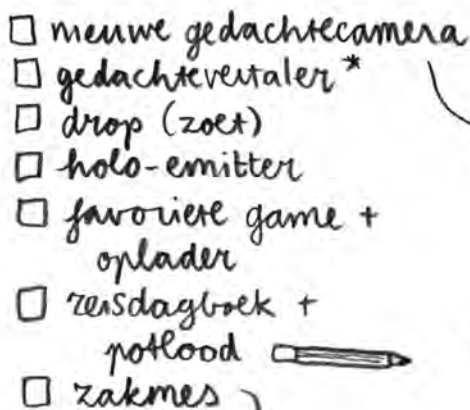 nieuwe gedachtecamera
gedachtevertaler*
drop (zoet)
holo-emitter
favoriete game +
oplader
reisdagboek +
potlood
zakmes